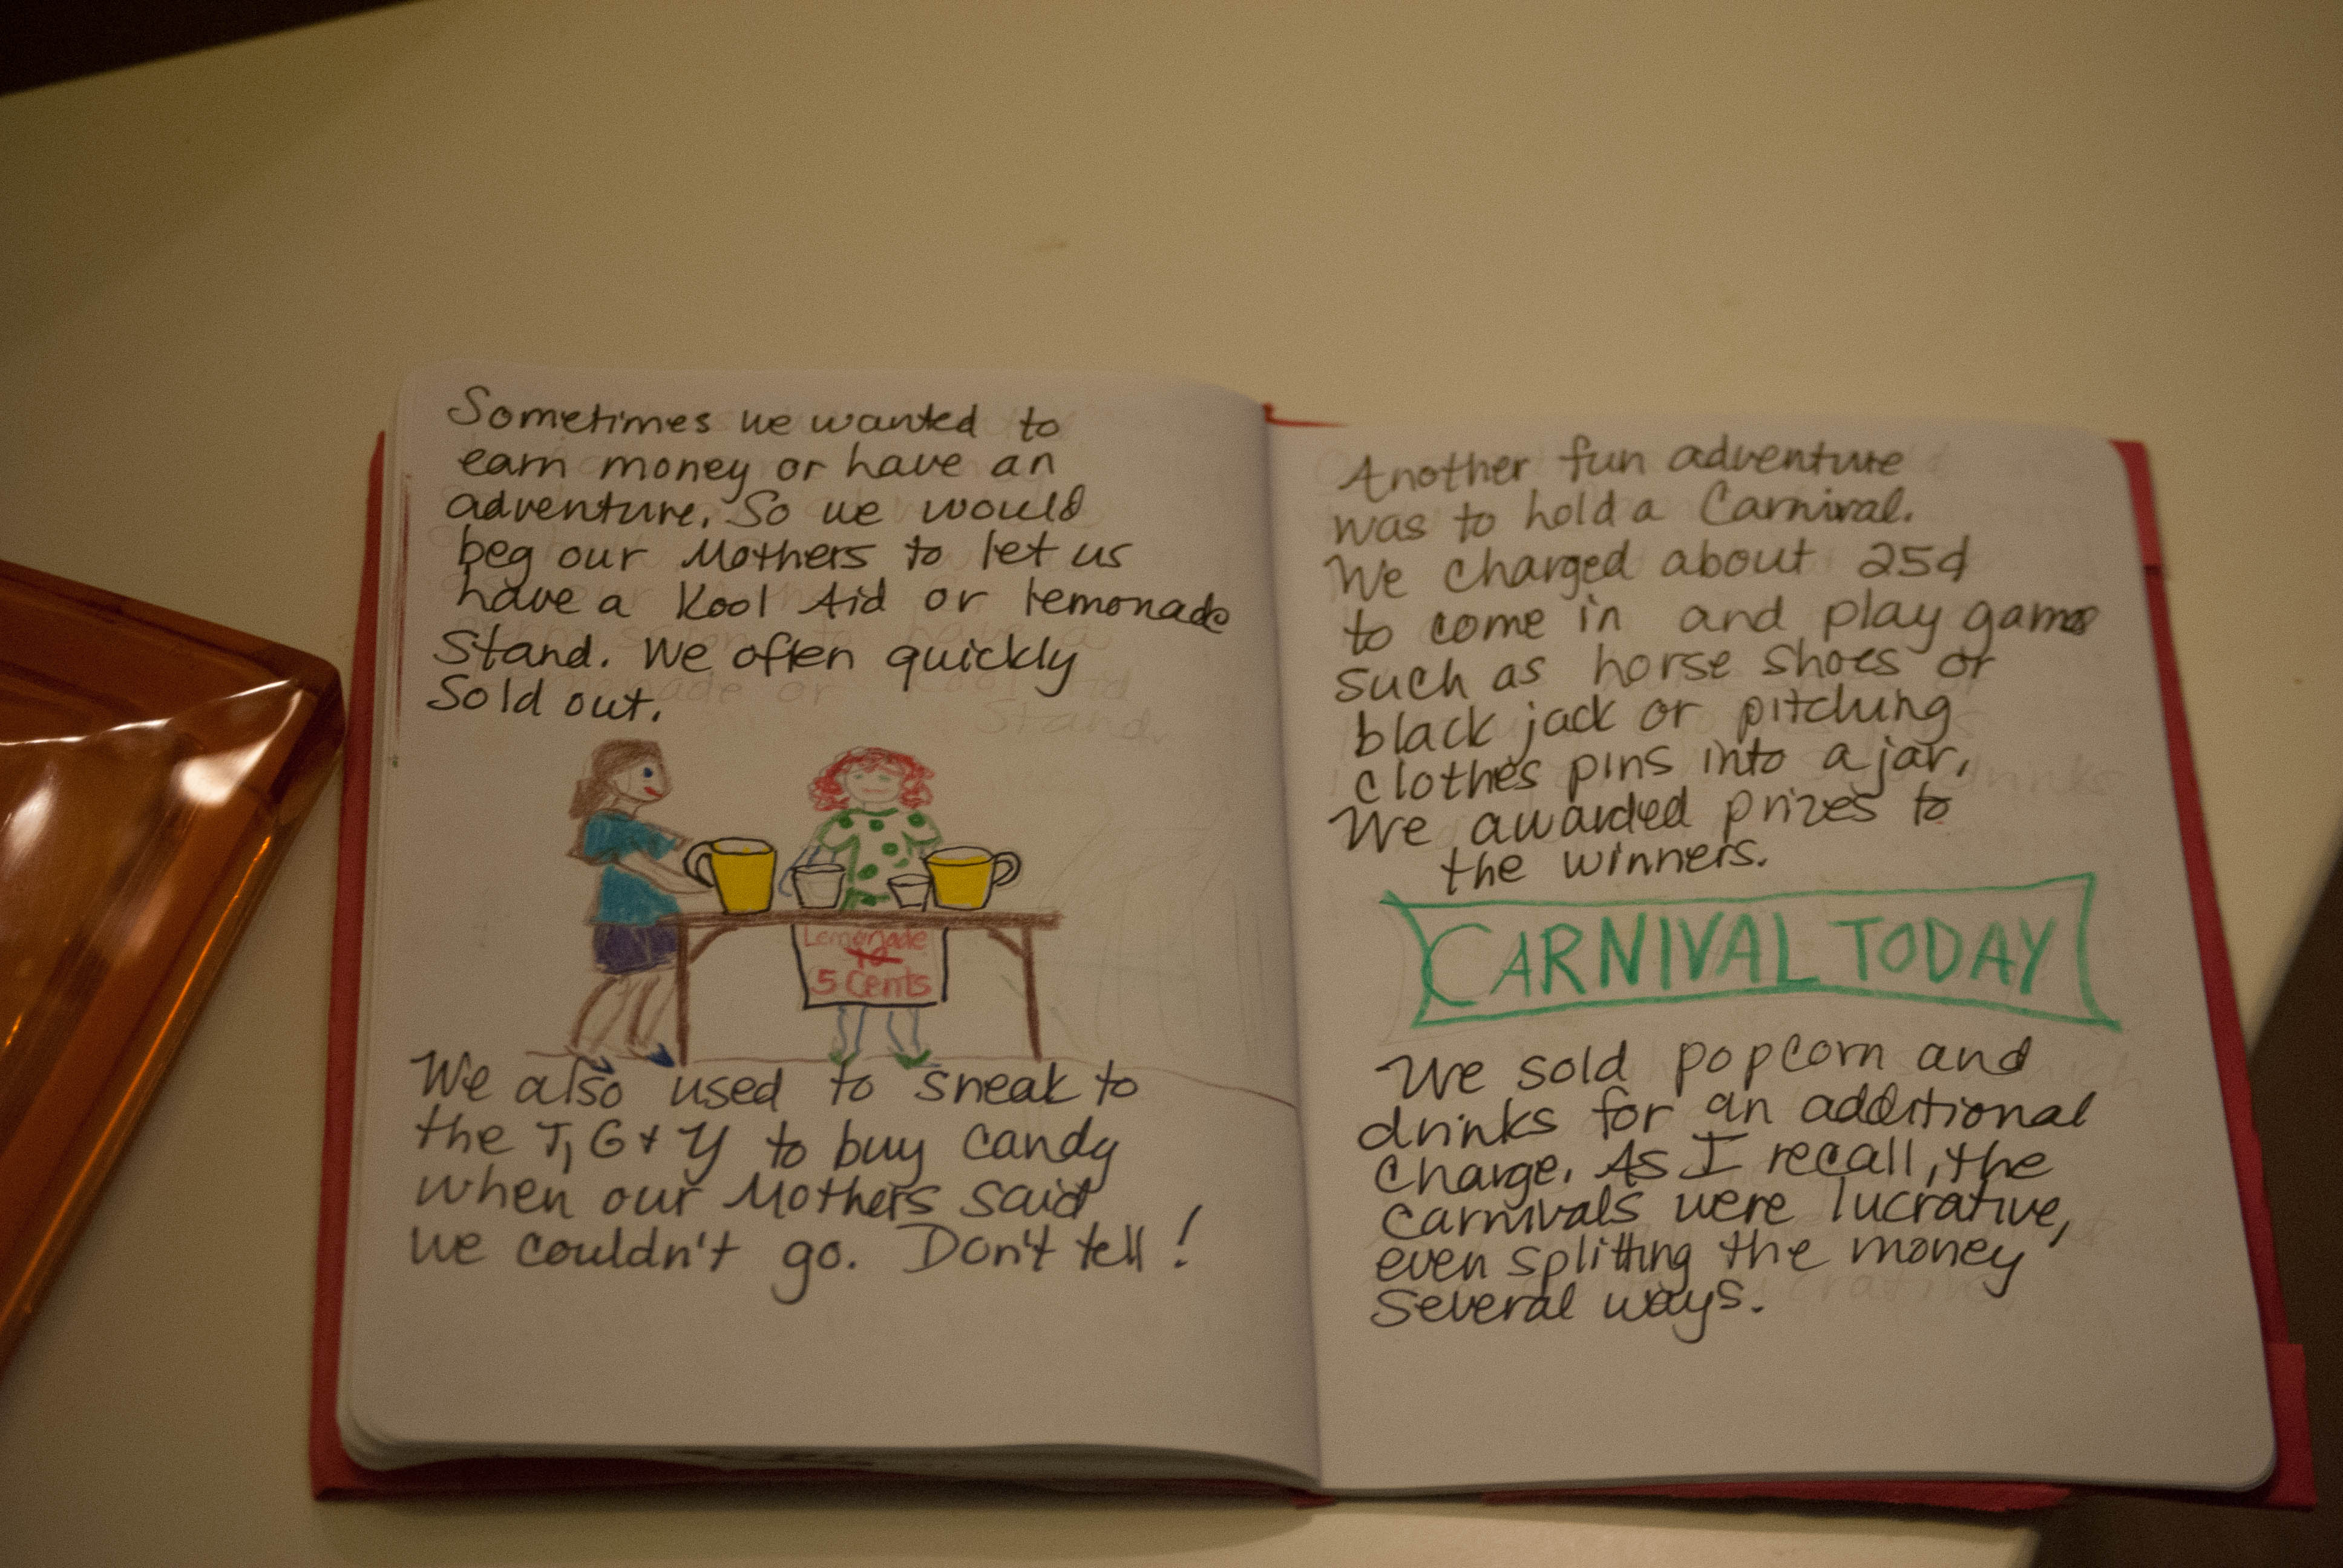 Sometimes we wanted to
earn money or have an
adventure. So we would
beg our Mothers to let us
have a Kool Aid or lemonade
Stand. We often quickly
Sold out.
Lemonade
10
5 Cents
We also used to sneak to
the T, G & Y to buy candy
when our Mothers said
we couldn't go. Don't tell!
Another fun adventure
was to hold a Carnival.
We charged about 25¢
to come in and play games
such as horse shoes or
black jack or pitching
clothes pins into a jar.
We awarded prizes to
the winners.
CARNIVAL TODAY
We sold popcorn and
drinks for an additional
Charge. As I recall, the
carnivals were lucrative,
even splitting the money
several ways.